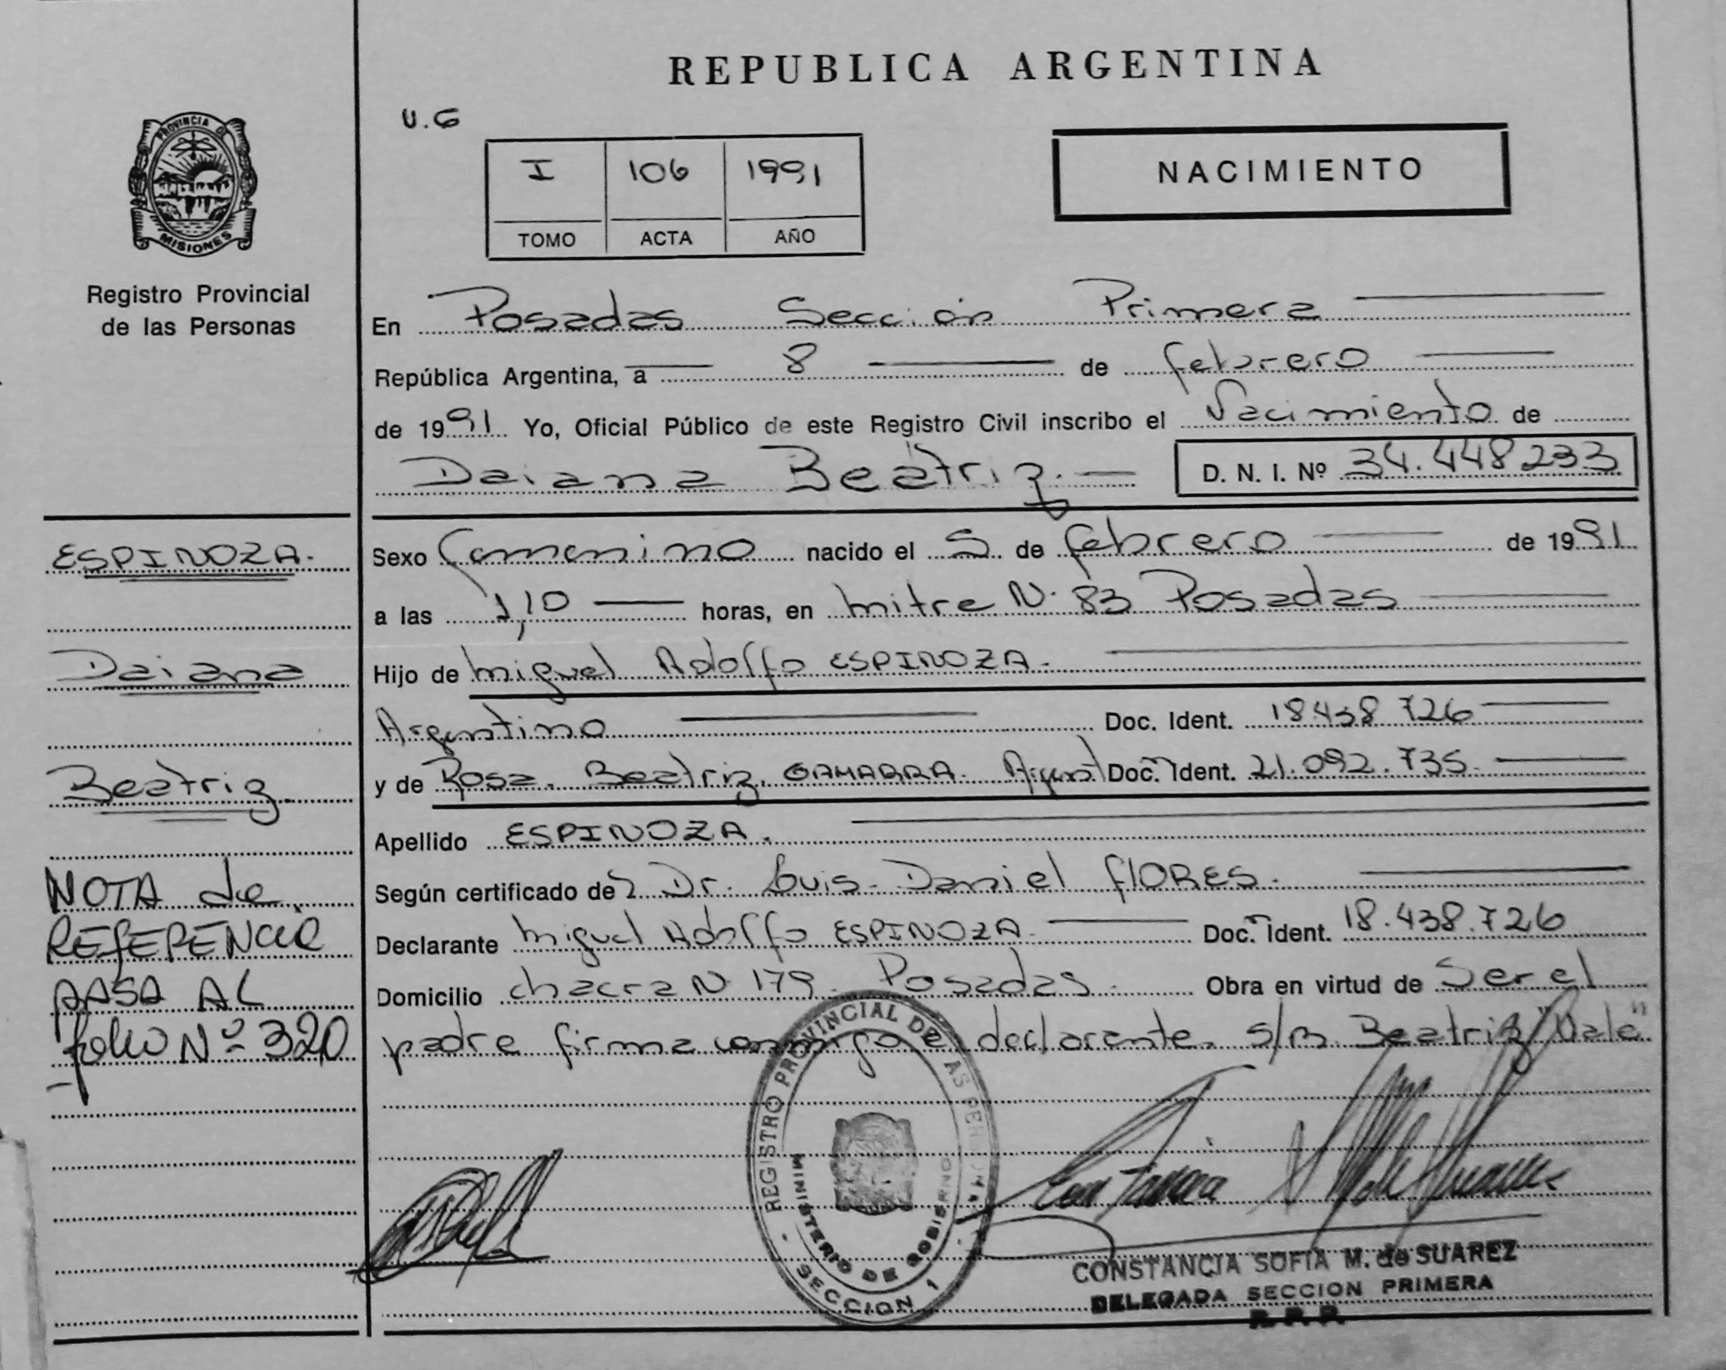 REPUBLICA ARGENTINA
U.G
I 106 1991
TOMO ACTA AÑO
NACIMIENTO
PROVINCIA DE
MISIONES
Registro Provincial
de las Personas
En Posadas Sección Primera
República Argentina, a 8 de febrero
de 1991 Yo, Oficial Público de este Registro Civil inscribo el Nacimiento de
Daiana Beatriz.
D. N. I. Nº 34.448.233
ESPINOZA.
Daiana
Beatriz
NOTA de
REFERENCIA
PASA AL
folio Nº 320
Sexo femenino nacido el 5 de febrero de 1991
a las 1,10 horas, en mitre N. 83 Posadas
Hijo de Miguel Adolfo ESPINOZA.
Argentino Doc. Ident. 18.438.726
y de Rosa. Beatriz. GAMARRA. Doc. Ident. 21.092.735.
Apellido ESPINOZA.
Según certificado de Dr. Luis Daniel FLORES.
Declarante Miguel Adolfo ESPINOZA Doc. Ident. 18.438.726
Domicilio chacra N 179. Posadas. Obra en virtud de Ser el
padre firma conmigo el declarante. s/r Beatriz "Vale"
REGISTRO PROVINCIAL DE LAS PERSONAS
MINISTERIO DE GOBIERNO
- SECCION 1 -
CONSTANCIA SOFIA M. de SUAREZ
DELEGADA SECCION PRIMERA
R. P. P.